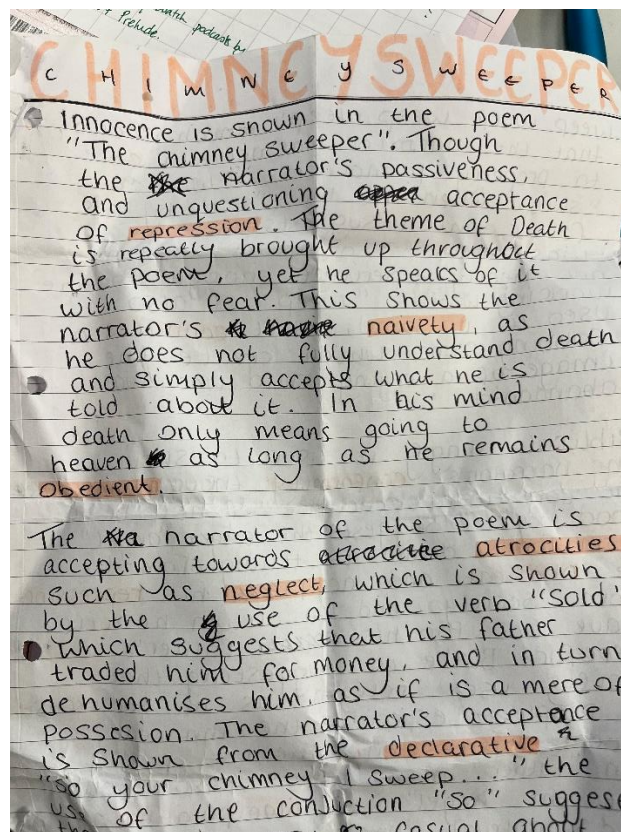 watch podcast by
Prelude.
CHIMNEY SWEEPER
Innocence is shown in the poem
"The chimney sweeper". Though
the narrator's passiveness,
and unquestioning acceptance
of repression. The theme of Death
is repeatly brought up throughout
the poem, yet he speaks of it
with no fear. This shows the
narrator's naivety, as
he does not fully understand death
and simply accepts what he is
told about it. In his mind
death only means going to
heaven as long as he remains
obedient.
The narrator of the poem is
accepting towards atrocities
such as neglect, which is shown
by the use of the verb "sold"
which suggests that his father
traded him for money, and in turn
dehumanises him, as if is a mere of
possesion. The narrator's acceptance
is shown from the declarative
"so your chimney I sweep..." the
use of the conjuction "so" suggest
the casual and